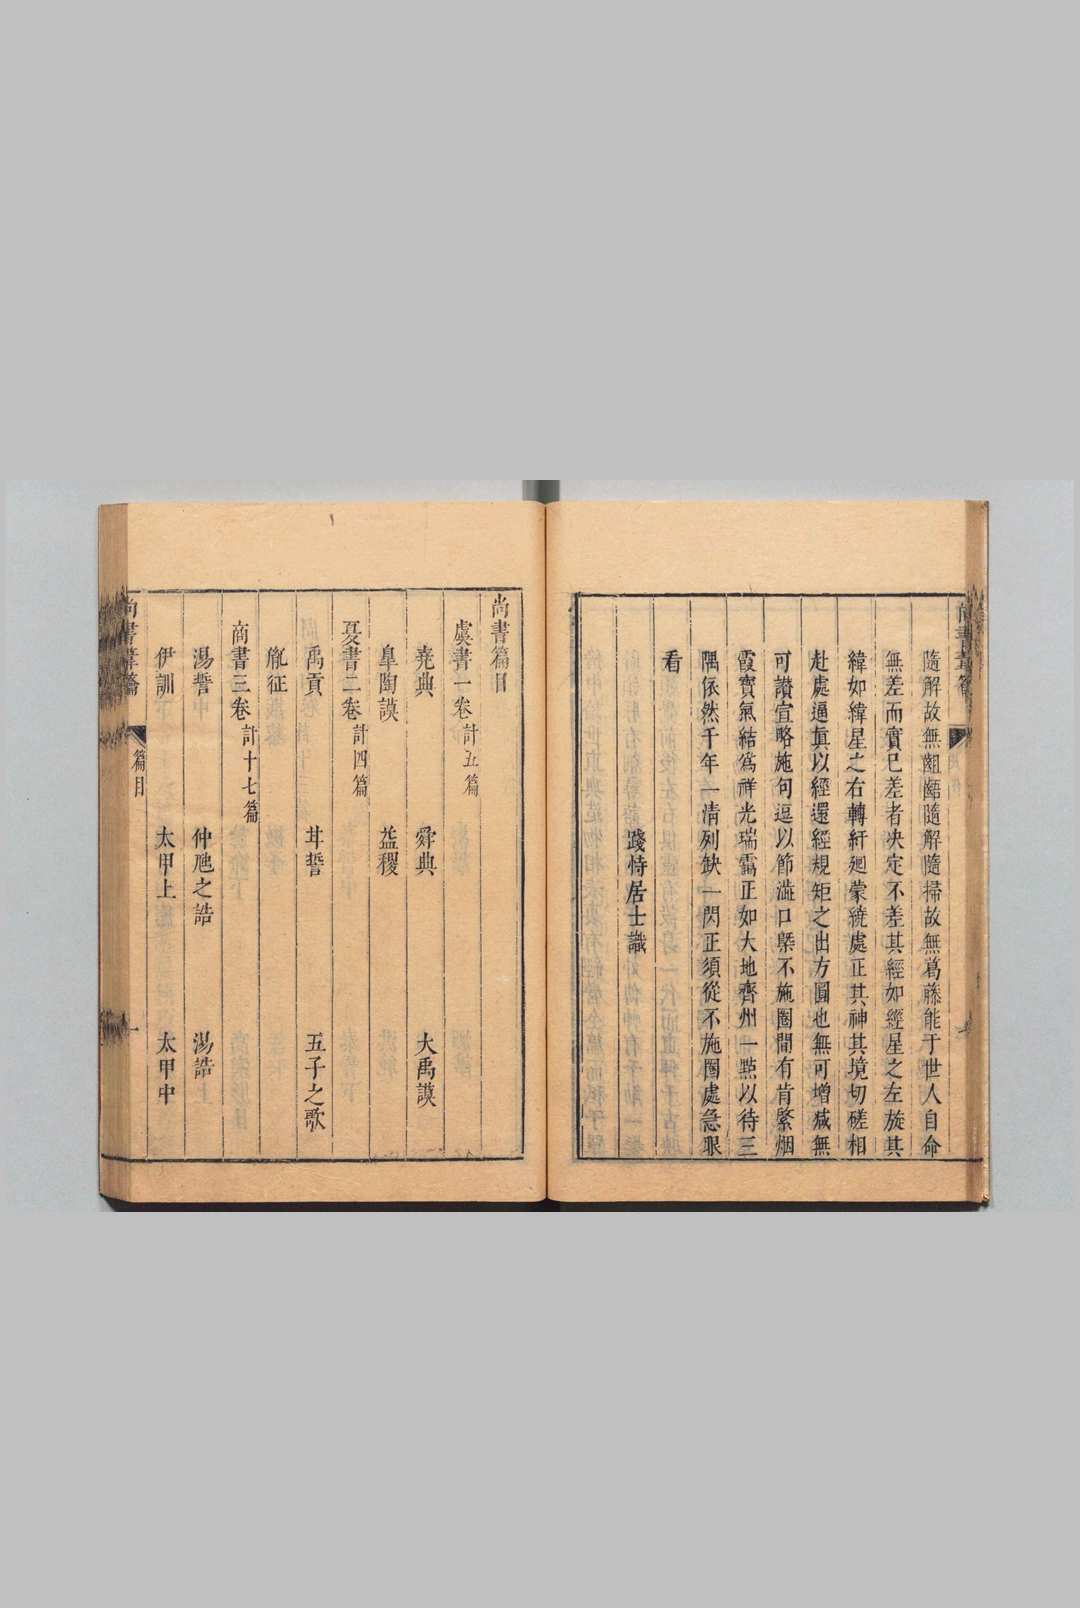 隨解故無齟齬隨解隨掃故無葛藤能于世人自命
無差而實已差者決定不差其經如經星之左旋其
緯如緯星之右轉紆廻蒙繞處正其神其境切磋相
赴處逼眞以經還經規矩之出方圓也無可增減無
可讚宜略施句逗以節溢口槩不施圈間有肯綮烟
霞寶氣結爲祥光瑞靄正如大地齊州一點以待三
隅依然千年一清列缺一閃正須從不施圈處急眼
看
踐恃居士識
尚書篇目
虞書一卷計五篇
堯典 舜典 大禹謨
皐陶謨 益稷
夏書二卷計四篇
禹貢 甘誓 五子之歌
胤征
商書三卷計十七篇
湯誓 仲虺之誥 湯誥
伊訓 太甲上 太甲中
尚書葦籥 篇目 一